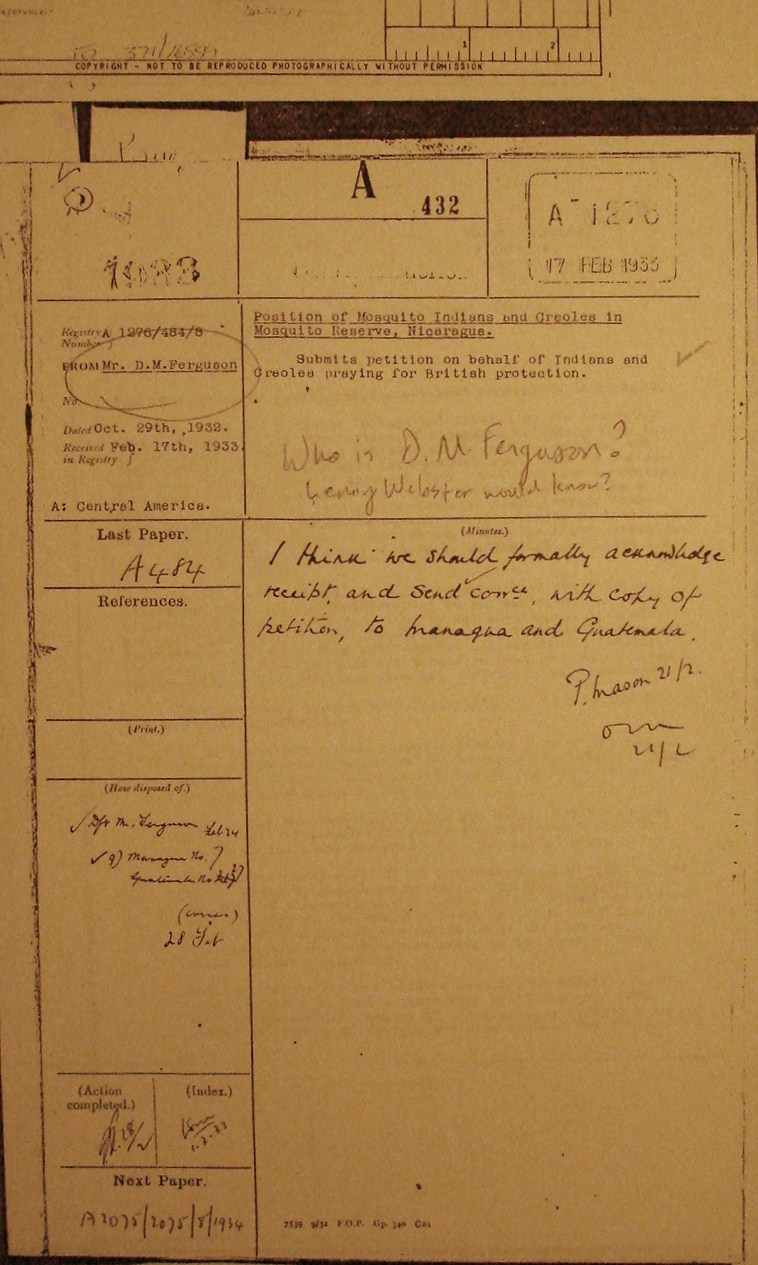 1 2
COPYRIGHT - NOT TO BE REPRODUCED PHOTOGRAPHICALLY WITHOUT PERMISSION
A
432
A 1276
17 FEB 1933
1933
Registry Number A 1276/484/8
FROM Mr. D.M.Ferguson
No.
Dated Oct. 29th, 1932.
Received in Registry Feb. 17th, 1933
A: Central America.
Position of Mosquito Indians and Creoles in
Mosquito Reserve, Nicaragua.
Submits petition on behalf of Indians and
Creoles praying for British protection.
Who is D. M. Ferguson?
Webster would know?
Last Paper.
A 484
References.
(Print.)
(How disposed of.)
Dft Mr. Ferguson Feb 24
Managua No. 7
Guatemala No
28 Feb
(Action completed.)
(Index.)
Next Paper.
A2075/2075/8/1934
(Minutes.)
I think we should formally acknowledge
receipt, and send corrce, with copy of
petition, to Managua and Guatemala.
P. Mason 21/2.
21/2
7539 F.O.P.